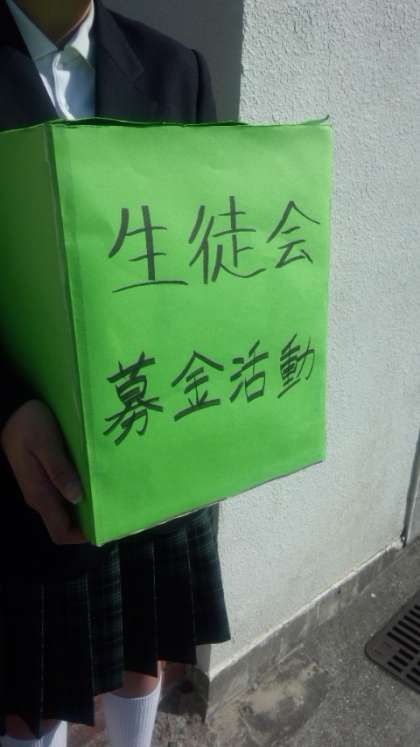 生徒会
募金活動